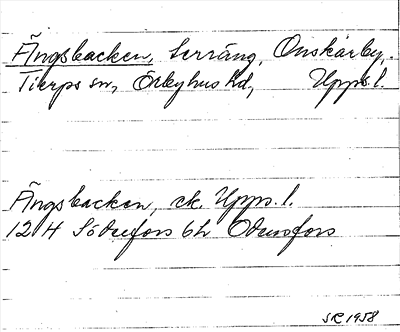 Ängsbacken, terräng, Onskarby,
Tierps sn, Örbyhus hd, Upps. l.
Ängsbacken, ek. Upps. l.
12 H Söderfors 6h Odensfors
SR 1958